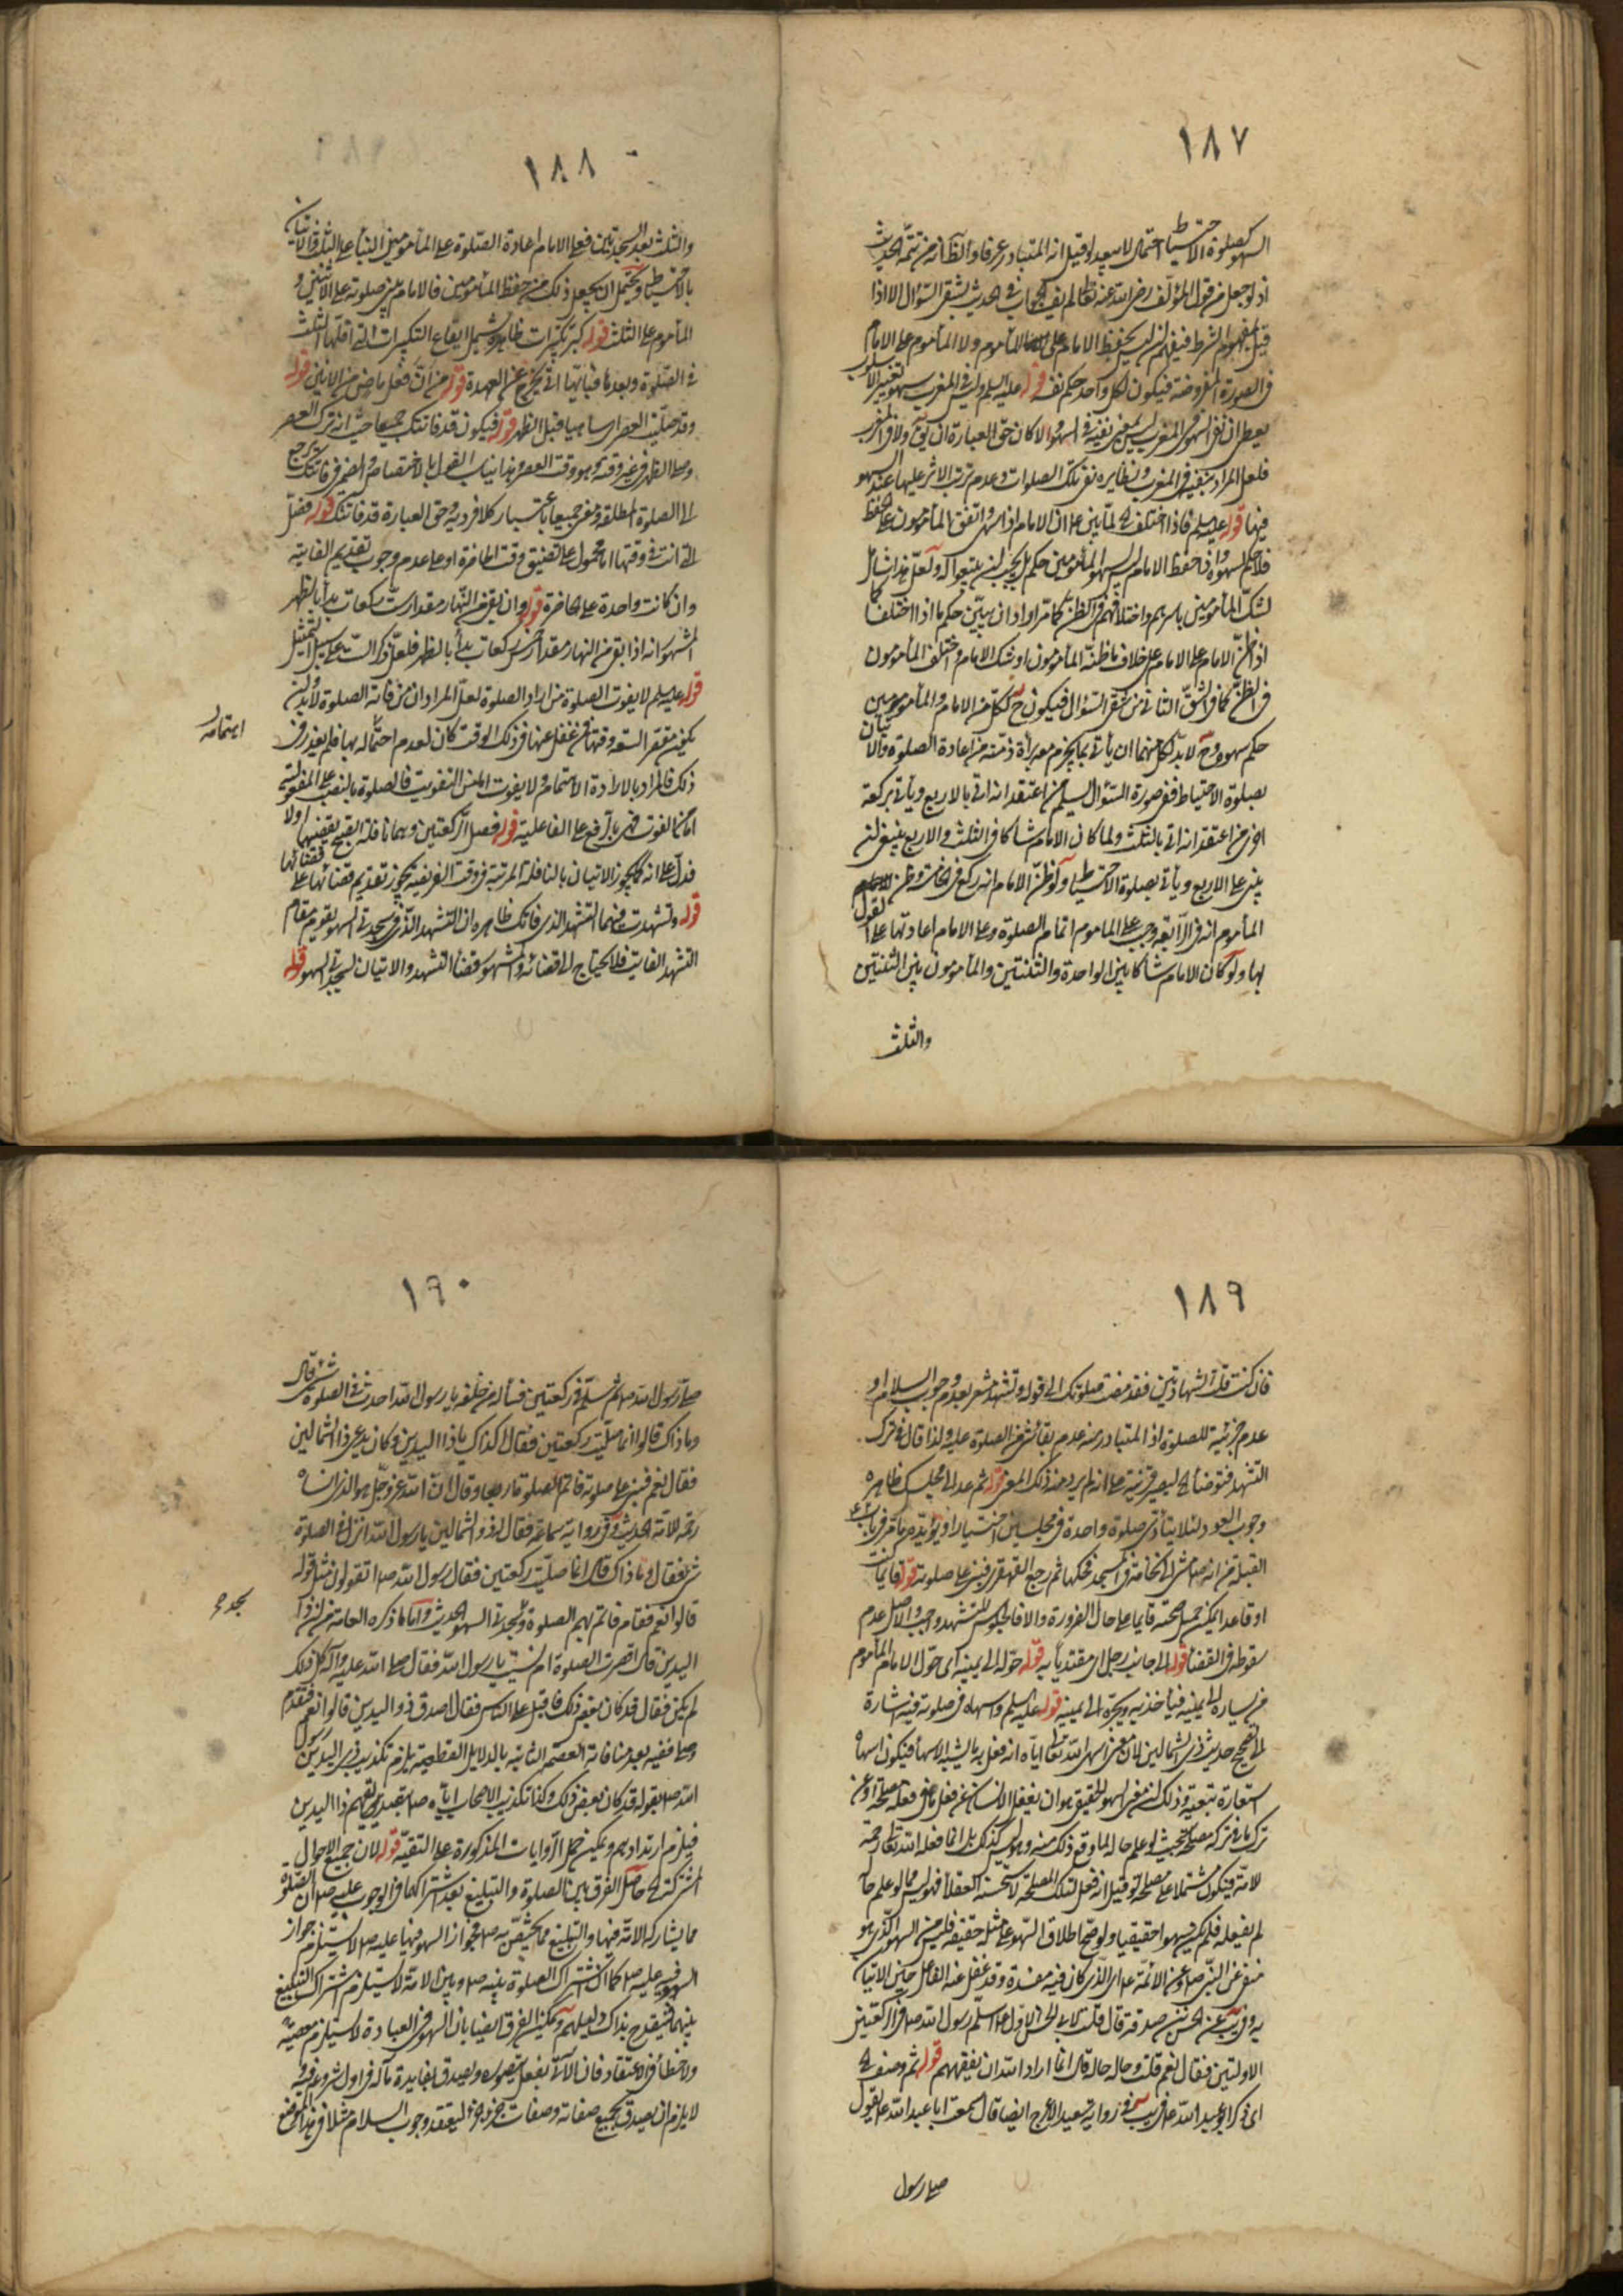 ١٨٧
السهو كصلوة الاحتياط احتمال لا يبعد لو قيل انه المتبادر عرفا والظ انه من تتمة الحديث
اذ لو جعل من قول المؤلف رضى الله عنه لم يف الجواب في الحديث بشقى السؤال الا اذا
قيل بمفهوم الشرط فيفهم ان ليس بحفظ الامام على المأموم ولا المأموم على الامام
في الصورة المفروضة فيكون لكل واحد حكم نفسه قوله عليه السلم وليس في المغرب سهو تغيير الاسلوب
يعطى ان نفى السهو في المغرب ليس بمعنى نفيه في السهو والا كان حق العبارة ان يق ولا في المغرب
فلعل المراد بنفيه في المغرب ونظايره نفى تلك الصلوات وعدم ترتب الاثر عليها عند السهو
فيها قوله عليه السلم فاذا اختلف الخ لما بين ان الامام اذا سهى واتفق المأمومون على حفظ
فلا حكم لسهوه واذ حفظ الامام ليس لسهو المأمومين حكم بل يجب ان يتبعوا له ولعل هذا شامل
لشك المأمومين باسرهم واختلافهم في الظن كما مر اراد ان يبين حكم ما اذا اختلفا كما
اذ ظن الامام على خلاف ما ظنه المأمومون او شك الامام واختلف المأمومون
في الظن كما في الشق الثاني من شقى السؤال فيكون ح لكل من الامام والمأمومين
حكم سهوه وح لا بد لكل منهما ان يأتى بما يجزم معه برأة ذمته من اعادة الصلوة والاتيان
بصلوة الاحتياط ففى صورة السؤال يسلم من اعتقد انه اتى بالاربع ويأتى بركعة
اخرى من اعتقد انه اتى بالثلث ولما كان الامام شاكا في الثلث والاربع ينبغى ان
يبنى على الاربع ويأتى بصلوة الاحتياط ولو ظن الامام انه ركع في الخامسة وظن
المأموم انه في الرابعة وجب على الماموم اتمام الصلوة وعلى الامام اعادتها على القول
بها ولو كان الامام شاكا بين الواحدة والثنتين والمأمومون بين الثنتين
والثلث
١٨٨
والثلث بعد السجدتين فعلى الامام اعادة الصلوة وعلى المأمومين البنأ على الثلث والاتيان
بالاحتياط ويحتمل ان يجعل ذلك من حفظ المأمومين فالامام يبنى صلوته على الاثنتين و
المأموم على الثلث قوله كبر تكبيرات ظاهره يشمل ايقاع التكبيرات التى اقلها الثلث
في الصلوة وبعدها فبايهما اتى يخرج عن العهدة قوله من ان فعل ماض من الانين قوله
وقد صليت العصر اى ساهيا قبل الظهر قوله فيكون قد فاتتك جميعا حيث انه ترك العصر
وصلى الظهر في غير وقته وهو وقت العصر وهذا يناسب القول بالاختصاص والضمير في فاتتك يرجع
الى الصلوة المطلقة ومعنى جميعا باعتبار كلا فرديه وحق العبارة قد فاتتك قوله فصل
التى انت في وقتها اما محمول على تضييق وقت الحاضرة او على عدم وجوب تقديم الفايتة
وان كانت واحدة على الحاضرة قوله وان بقى من النهار مقدار ست ركعات بدأ بالظهر
المشهور انه اذا بقى من النهار مقدار خمس ركعات بدأ بالظهر فلعل ذكر الست على سبيل التمثيل
قوله عليه السلم لا يفوت الصلوة من اراد الصلوة لعل المراد ان من فاته الصلوة لا بد وان
يكون مقصر السعة وقتها فمن غفل عنها في ذلك الوقت كان لعدم احتماله بها فلم يعذر في
اهتمامه
ذلك فالمراد بالارادة الاهتمام ولا يفوت اما من التفويت فالصلوة بالنصب على المفعولية
اما من الفوت فهى بالرفع على الفاعلية قوله فصل الركعتين وهما نافلة الصبح يقضيهما اولا
فدل على انه كما يجوز الاتيان بالنافلة المرتبة في وقت الفريضة يجوز تقديم قضائها على قضائها
قوله وتشهدت فيهما التشهد الذى فاتك ظاهره ان التشهد الذى في سجدتى السهو يقوم مقام
التشهد الفايت فلا يحتاج الى قضائه والمشهور قضأ التشهد والاتيان بسجدتى السهو قوله
١٨٩
فان كنت قلت الشهادتين فقد مضت صلوتك الى قوله وتشهد مشعر بعدم وجوب السلام او
عدم جزئيته للصلوة اذ المتبادر منه عدم بقاء شئ من الصلوة عليه ولذا قال في ترك
التشهد فتوضأ الخ ليصير قرينة على انه لم يرد منه ذلك المعنى قوله ثم عد الى مجلسك ظاهره
وجوب العود لئلا يتأدى صلوة واحدة في مجلسين اختيارا ويؤيده ما مر في باب
القبلة من انه ص مشى الى نخامة في المسجد فحكها ثم رجع القهقرى فبنى على صلوته قوله قايما كنت
او قاعدا يمكن حمل صحته قايما على حال الضرورة والا فالجلوس للتشهد واجب والاصل عدم
سقوطه في القضأ قوله الى جانب رجل اى مقتديا به قوله حوله الى يمينه اى حول الامام المأموم
من يساره الى يمينه فيأخذ بيده ويجره الى يمينه قوله عليه السلم واسهاه في صلوته فيه اشارة
الى تصحيح حديث ذى الشمالين لان معنى اسهى الله تعالى اياه انه فعل به ما يشبه الاسهأ فيكون اسهاه
استعارة تبعية وذلك لان معنى السهو الحقيقى هو ان يغفل الانسان عن فعل ما في فعله مصلحة او عن
ترك ما في تركه مصلحة بحيث لو علم حاله لما وقع ذلك منه وهو ليس كذلك بل انما فعله الله تعالى رحمة
للامة فيكون مشتملا على مصلحة لو قيل انه فعل لتلك المصلحة لاستحسنه العقلأ فهو ليس مما لو علم حاله
لم يفعله فلم يكن سهوا حقيقيا ولو صح اطلاق السهو على مثل حقيقة فليس من السهو الذى هو
منفى عن النبى ص وعن الائمة ع اى الذى كان فيه مفسدة وقد غفل عنه الفاعل حين الاتيان
به وفى يب عن الحسن بن صدقة قال قلت لابى الحسن الاول ع اسلم رسول الله ص في الركعتين
الاوليين فقال نعم قلت وحاله حاله قال انما اراد الله ان يفقههم قوله ثم وصف الخ
اى ذكر ابو عبد الله ع في يب في رواية سعيد الاعرج ايضا قال سمعت ابا عبد الله ع يقول
صلى رسول
١٩٠
صلى رسول الله ص ثم سلم في ركعتين فسأله من خلفه يا رسول الله احدث في الصلوة شئ قال
وما ذاك قالوا انما صليت ركعتين فقال اكذاك يا ذا اليدين وكان يدعى ذا الشمالين
فقال نعم فبنى على صلوته فاتم الصلوة اربعا وقال ان الله عز وجل هو الذى انساه
رحمة للامة الحديث وفى رواية سماعة فقال له ذو الشمالين يا رسول الله انزل في الصلوة
شئ فقال وما ذاك قال انما صليت ركعتين فقال رسول الله ص اتقولون مثل قوله
قالوا نعم فقام فاتم بهم الصلوة وسجد سجدتى السهو الحديث واما ما ذكره العامة من ان ذا
اليدين قال اقصرت الصلوة ام نسيت يا رسول الله فقال صلى الله عليه وآله كل ذلك
لم يكن فقال قد كان بعض ذلك فاقبل على الناس فقال اصدق ذو اليدين قالوا نعم فتقدم
وصلى ففيه بعد منافاته العصمة الثابتة بالدلايل القطعية يلزم تكذيب ذى اليدين رسول
الله ص بقوله قد كان بعض ذلك وكذا تكذيب الاصحاب اياه ص بتصديقهم ذا اليدين
فيلزم ارتدادهم ويمكن حمل الروايات المذكورة على التقية قوله لان جميع الاحوال
المشتركة الخ حاصل الفرق بين الصلوة والتبليغ بعد اشتراكهما في الوجوب عليه ص ان الصلوة
مما يشاركه الامة فيها والتبليغ مما يختص به ص فجواز السهو فيها عليه ص لا يستلزم جواز
السهو فيه عليه ص كما ان اشتراك الصلوة بينه ص وبين الامة لا يستلزم اشتراك التبليغ
بينهما فينقدح بذاك دليلهم ويمكن الفرق ايضا بان السهو في العبادة لا يستلزم معصية
ولا خطأ في الاعتقاد فان الآتى بفعل يتصوره ويصدق بفايدة ما له في اول شروعه فيه
لا يلزم ان يصدق بجميع صفاته وصفات جزء جزء ليعتقد وجوب السلام مثلا في هذا الموضع